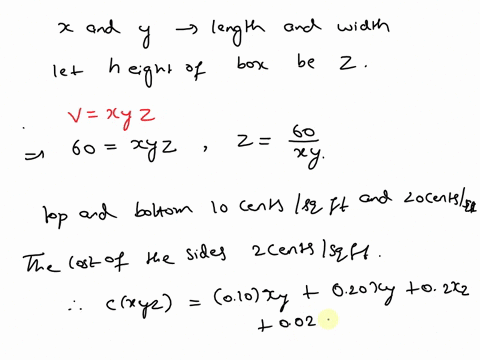 x and y → length and width
let height of box be z.
V = xyz
⇒ 60 = xyz , z = 60/xy.
top and bottom 10 cents/sq ft and 20cents/sq
The cost of the sides 2cents/sqft.
∴ c(xyz) = (0.10)xy + 0.20xy + 0.2xz
+ 0.02